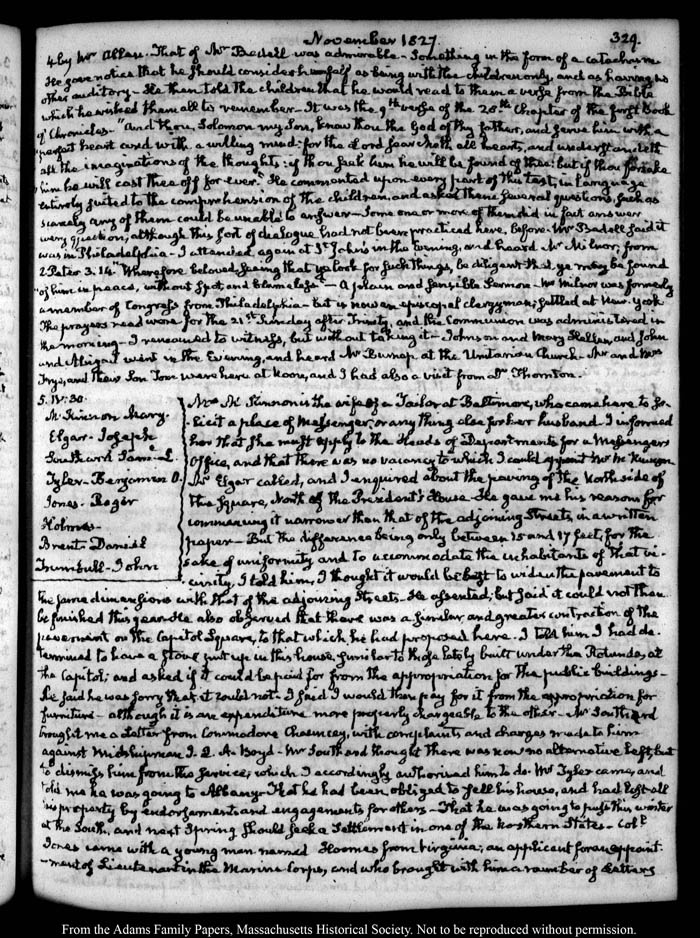 November 1827. 329.
4 by Mr Allen. That of Mr Bedell was admirable - Something in the form of a catechism
He gave notice that he should consider himself as being with the children only, and as having no
other auditory - He then told the children that he would read to them a verse from the Bible
which he wished them all to remember - It was the 9th verse of the 28th Chapter of the first Book
of Chronicles - "And thou, Solomon my Son, know thou the God of thy father, and serve him with a
perfect heart and with a willing mind: for the Lord searcheth all hearts, and understandeth
all the imaginations of the thoughts: if thou seek him he will be found of thee: but if thou forsake
him he will cast thee off for ever." He commented upon every part of this text, in language
entirely suited to the comprehension of the children, and asked them several questions, such as
scarcely any of them could be unable to answer - Some one or more of them did in fact answer
every question, although this sort of dialogue had not been practiced here, before. Mr Bedell said it
was in Philadelphia - I attended again at St John's in the Evening, and heard Mr Milnor, from
2 Peter 3. 14. "Wherefore beloved, seeing that ye look for such things, be diligent that ye may be found
"of him in peace, without spot and blameless" - A solemn and sensible Sermon - Mr Milnor was formerly
a member of Congress from Philadelphia - but is now an episcopal clergyman, settled at New-York.
The prayers read were for the 21st Sunday after Trinity, and the Communion was administered in
the morning - I remained to witness, but without taking it - Johnson and Mary Hellen, and John
and Abigail went in the Evening, and heard Mr Burnap at the Unitarian Church - Mr and Mrs
Frye, and their Son Tom were here at Noon, and I had also a visit from Dr Thornton.
5. IV:30.
McKinnon Mary.
Elgar - Joseph
Southard Saml L.
Tyler - Benjamin O.
Jones - Roger
Holmes -
Brent - Daniel
Trumbull - John
Mrs McKinnon is the wife of a Taylor at Baltimore, who came here to so-
licit a place of Messenger, or any thing else for her husband. I informed
her that she must apply to the Heads of Departments for a Messengers
Office, and that there was no vacancy to which I could appoint Mr McKinnon
Mr Elgar called, and I enquired about the paving of the North side of
the Square, North of the President's House. He gave me his reasons for
commencing it narrower than that of the adjoining Streets in a written
paper - But the difference being only between 15 and 17 feet, for the
sake of uniformity and to accommodate the inhabitants of that vi-
cinity, I told him, I thought it would be best to widen the pavement to
the same dimensions with that of the adjoining Streets - He assented; but said it could not then
be finished this year. He also observed that there was a similar and greater contraction of the
pavement on the Capitol Square, to that which he had proposed here. I told him I had de-
termined to have a stove put up in this house similar to those lately built under the Rotunda, at
the Capitol; and asked if it could be paid for from the appropriation for the public buildings -
He said he was sorry that it could not - I said I would then pay for it from the appropriation for
furniture - although it is an expenditure more properly chargeable to the other - Mr Southard
brought me a letter from Commodore Chauncey, with complaints and charges made to him
against Midshipman J. Q. A. Boyd - Mr Southard thought there was now no alternative left, but
to dismiss him from the service, which I accordingly authorised him to do. Mr Tyler came, and
told me he was going to Albany - That he had been obliged to sell his house, and had lost all
his property by endorsements and engagements for others - That he was going to pass this winter
at the South, and next Spring should seek a settlement in one of the Northern States - Coll
Jones came with a young man named Hoomes from Virginia, an applicant for an appoint-
-ment of Lieutenant in the Marine Corps, and who brought with him a number of letters
From the Adams Family Papers, Massachusetts Historical Society. Not to be reproduced without permission.